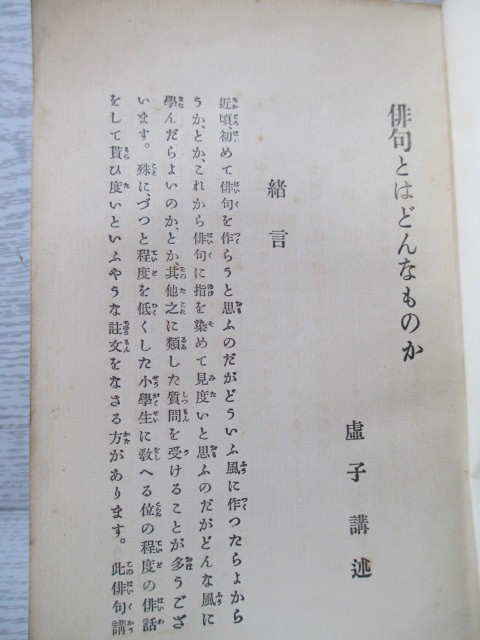 俳句とはどんなものか
虛子講述
緒言
近頃初めて俳句を作らうと思ふのだがどういふ風に作つたらよから
うかとか、これから俳句に指を染めて見度いと思ふのだがどんな風に
學んだらよいのか、とか、其他之に類した質問を受けることが多うござ
います。殊に、づつと程度を低くした小學生に敎へる位の程度の俳話
をして貰ひ度いといふやうな註文をなさる方があります。此俳句講